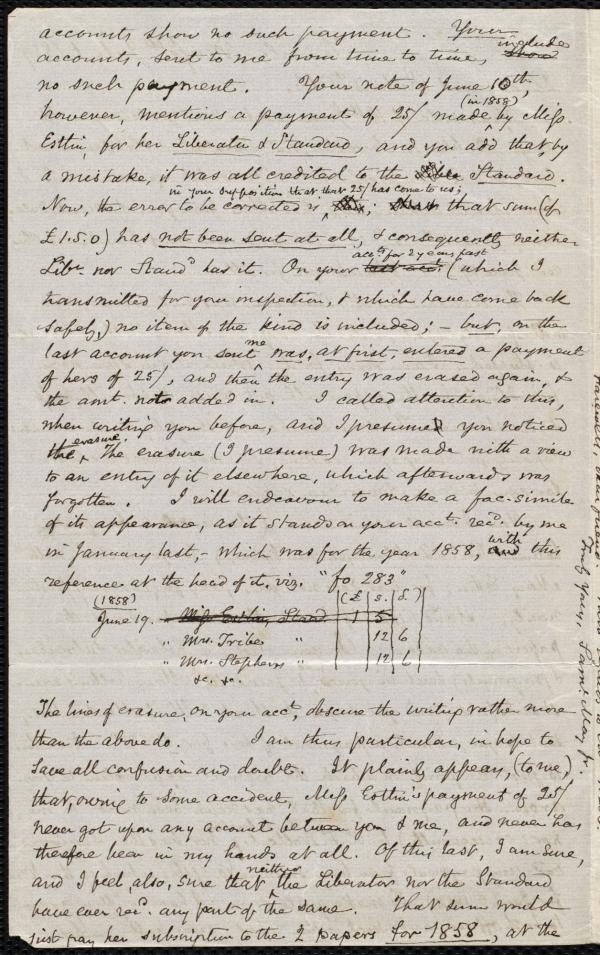 accounts show no such payment. Your
accounts, sent to me from time to time, include
no such payment. Your note of June 10th,
however, mentions a payment of 25/ (in 1858) made by Miss
Estlin, for her Liberator & Standard, and you add that, by
a mistake, it was all credited to the Standard.
Now, the error to be corrected is in your supposition that that 25/ has come to us; that sum (of
£1.5.0) has not been sent at all, & consequently neither
Libr. nor Standd. has it. On your accts. for 2 years past (which I
transmitted for your inspection, & which have come back
safely,) no item of the kind is included; – but, on the
last account you sent me was, at first, entered a payment
of hers of 25/, and then the entry was erased again, &
the amt. not added in. I called attention to this,
when writing you before, and I presume you noticed
the erasure. The erasure (I presume) was made with a view
to an entry of it elsewhere, which afterwards was
forgotten. I will endeavour to make a fac-simile
of its appearance, as it stands on your acct. recd. by me
in January last, – which was for the year 1858, with this
reference at the head of it, viz. "fo 283"
(1858) (£ s. d.)
June 19. Miss Estlin, Stand 1 5
" Mrs. Tribe " 12 6
" Mrs. Stephens " 12 6
&c. &c.
The lines of erasure, on your acct., obscure the writing rather more
than the above do. I am thus particular, in hope to
save all confusion and doubt. It plainly appears, (to me,)
that, owing to some accident, Miss Estlin's payment of 25/
never got upon any account between you & me, and never has
therefore been in my hands at all. Of this last, I am sure,
and I feel, also, sure that neither the Liberator nor the Standard
have ever recd. any part of the same. That sum would
just pay her subscription to the 2 papers for 1858, at the
Truly Yours, Saml. May, Jr.